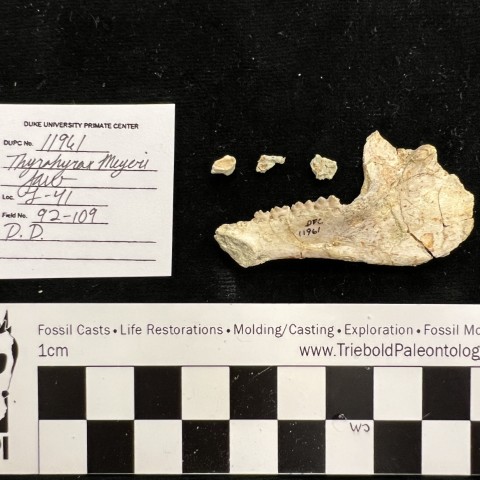 DUKE UNIVERSITY PRIMATE CENTER
DUPC No. 11961
Thyrohyrax Meyeri
Loc. L-41
Field No. 92-109
D. D.
DPC
11961
Fossil Casts • Life Restorations • Molding/Casting • Exploration • Fossil Mo
1cm
www.TrieboldPaleontolog